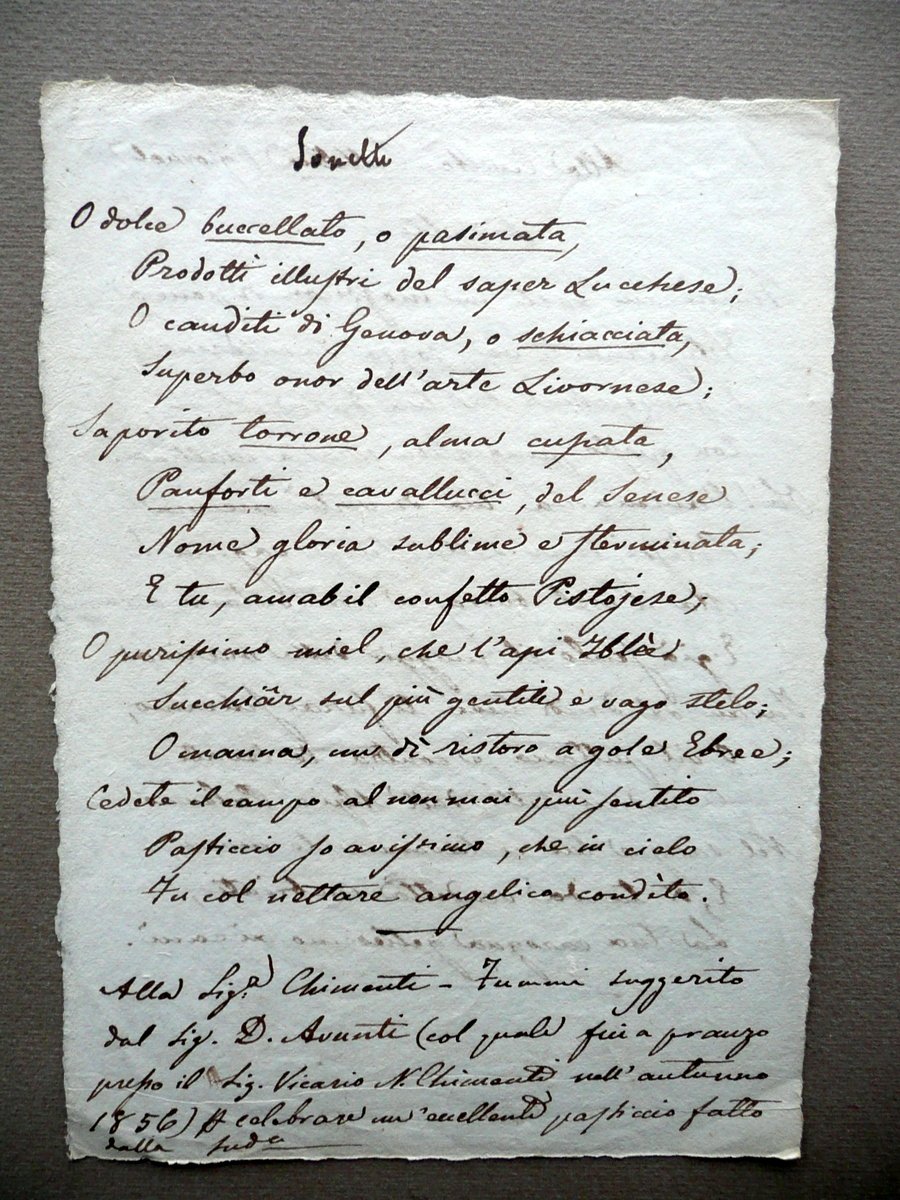 Sonetti
O dolce buccellato, o pasimata,
Prodotti illustri del saper Lucchese;
O canditi di Genova, o schiacciata,
Superbo onor dell'arte Livornese;
Saporito torrone, alma cupata,
Panforti e cavallucci, del Senese
Nome gloria sublime e sterminata;
E tu, amabil confetto Pistojese;
O purissimo miel, che l'api Iblèe
Succhiâr sul più gentile e vago stelo;
O manna, un dì ristoro a gole Ebree;
Cedete il campo al non mai più sentito
Pasticcio soavissimo, che in cielo
Fu col nettare angelico condìto.
Alla Sig.ª Chimenti - Fummi suggerito
dal Sig. D. Avunti (col quale fui a pranzo
presso il Sig. Vicario N. Chimenti nell'autunno
1856) A celebrare un'eccellente pasticcio fatto
dalla sud.ª